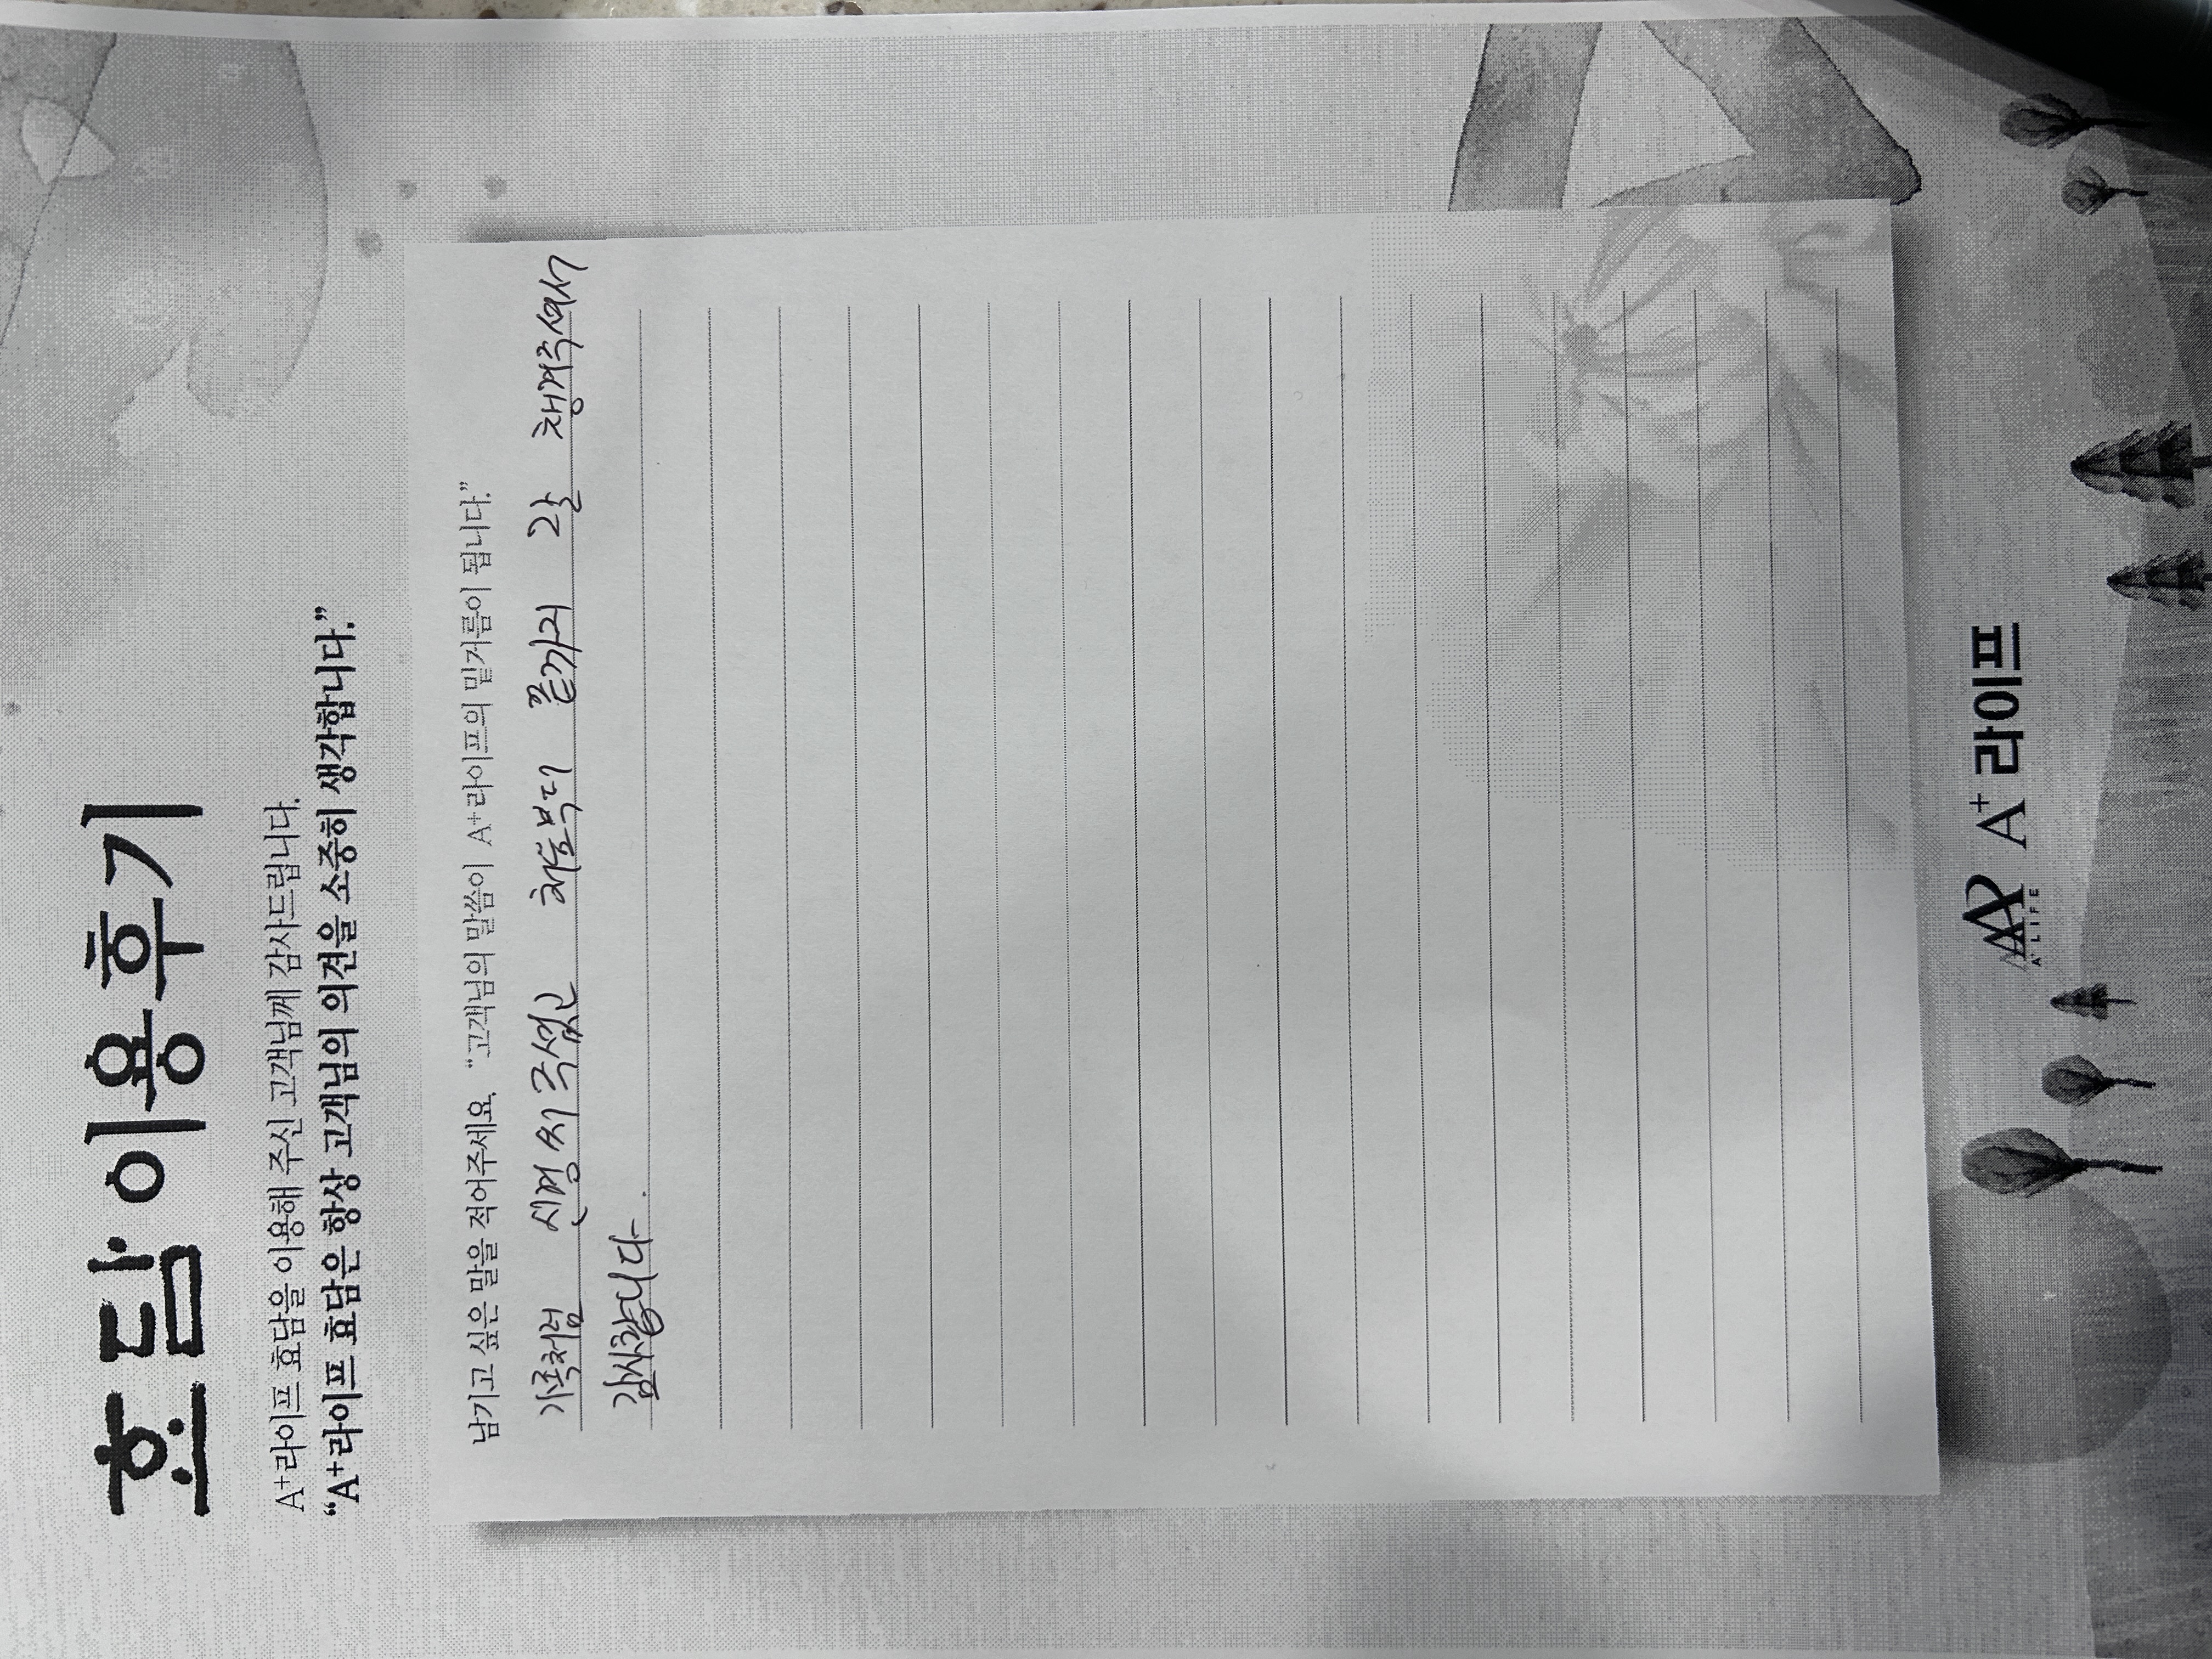 효담 이용후기
A+라이프 효담을 이용해 주신 고객님께 감사드립니다.
“A+라이프 효담은 항상 고객님의 의견을 소중히 생각합니다.”
남기고 싶은 말을 적어주세요. “고객님의 말씀이 A+라이프의 밑거름이 됩니다.”
가족처럼 신경써주셨고 처음부터 끝까지 잘 챙겨주셔서
감사합니다.
A+ LIFE A+ 라이프